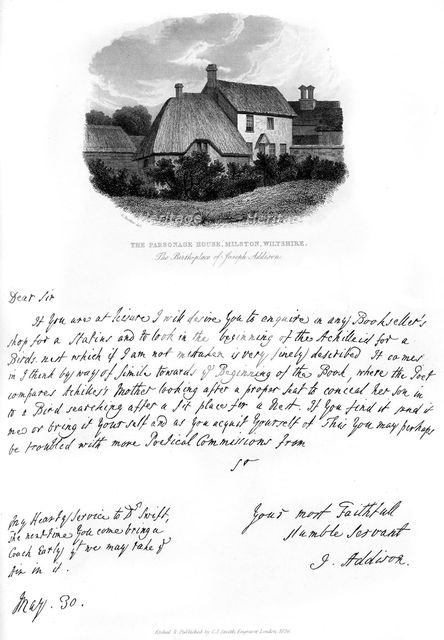 THE PARSONAGE HOUSE, MILSTON, WILTSHIRE.
The Birth-place of Joseph Addison.
Dear Sir
If You are at leisure I will desire You to enquire in any Bookseller's
shop for a Statius and to look in the beginning of the Achilleid for a
Birds-nest which if I am not mistaken is very finely described It comes
in I think by way of Simile towards yᵉ Beginning of the Book, where the Poet
compares Achilles's Mother looking after a proper seat to conceal her son in
to a Bird searching after a fit place for a Nest. If You find it send it
me or bring it Yourself and as You acquit Yourself of This You may perhaps
be troubled with more Poetical Commissions from
Sʳ
My Hearty Service to Dʳ Swift,
The next time You come bring a
Coach Early yᵗ we may take yᵉ
Air in it.
Your most Faithfull
Humble Servant
J. Addison.
May. 30.
Etched & Published by C.J. Smith, Engraver London,
Heritage
Heritage